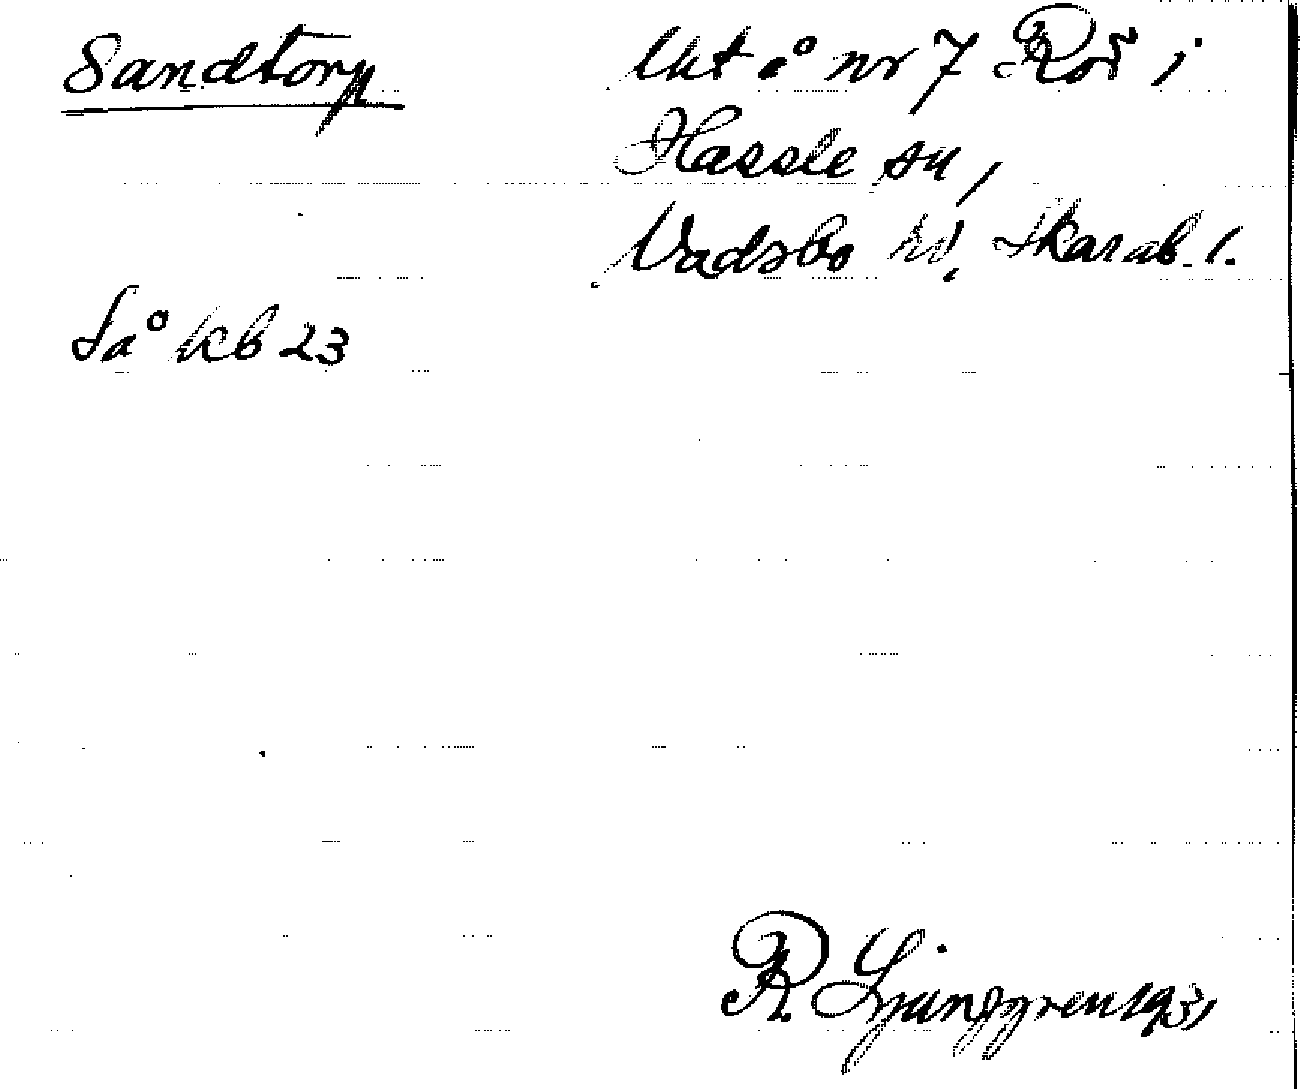 Sandtorp
Ukt å nr 7 Rör i
Hassle sn,
Vadsbo hd, Skarab. l.
Så kb 23
R. Ljunggren 1931